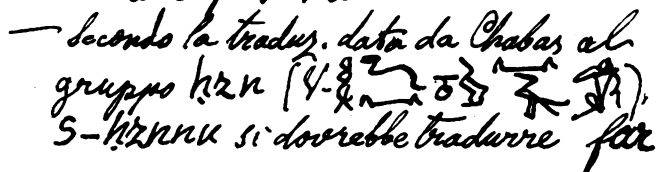 — Secondo la traduz. data da Chabas al
gruppo ḥzn (V-
S-ḥznnu si dovrebbe tradurre far